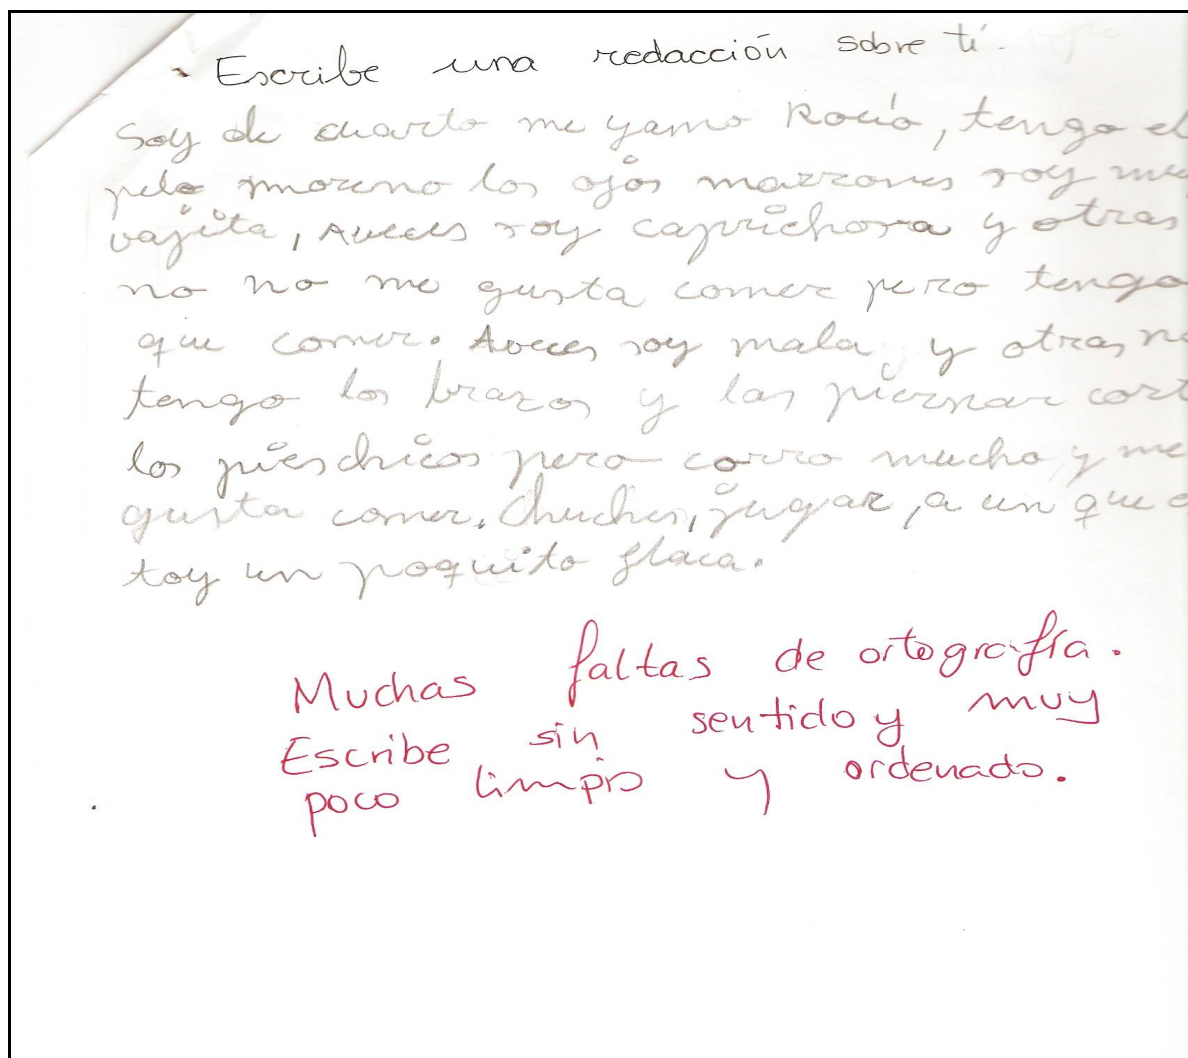 Escribe una redacción sobre ti.
Soy de cuarto me yamo Rocío, tengo el
pelo moreno los ojos marrones soy mu
vajita, Aveces soy caprichosa y otras
no no me gusta comer pero tengo
que comer. Aveces soy mala, y otras no
tengo los brazos y las piernas cort
los pies chicos pero corro mucho y me
gusta comer, chuches, jugar, a un que e
toy un poquito flaca.
Muchas faltas de ortografía.
Escribe sin sentido y muy
poco limpio y ordenado.